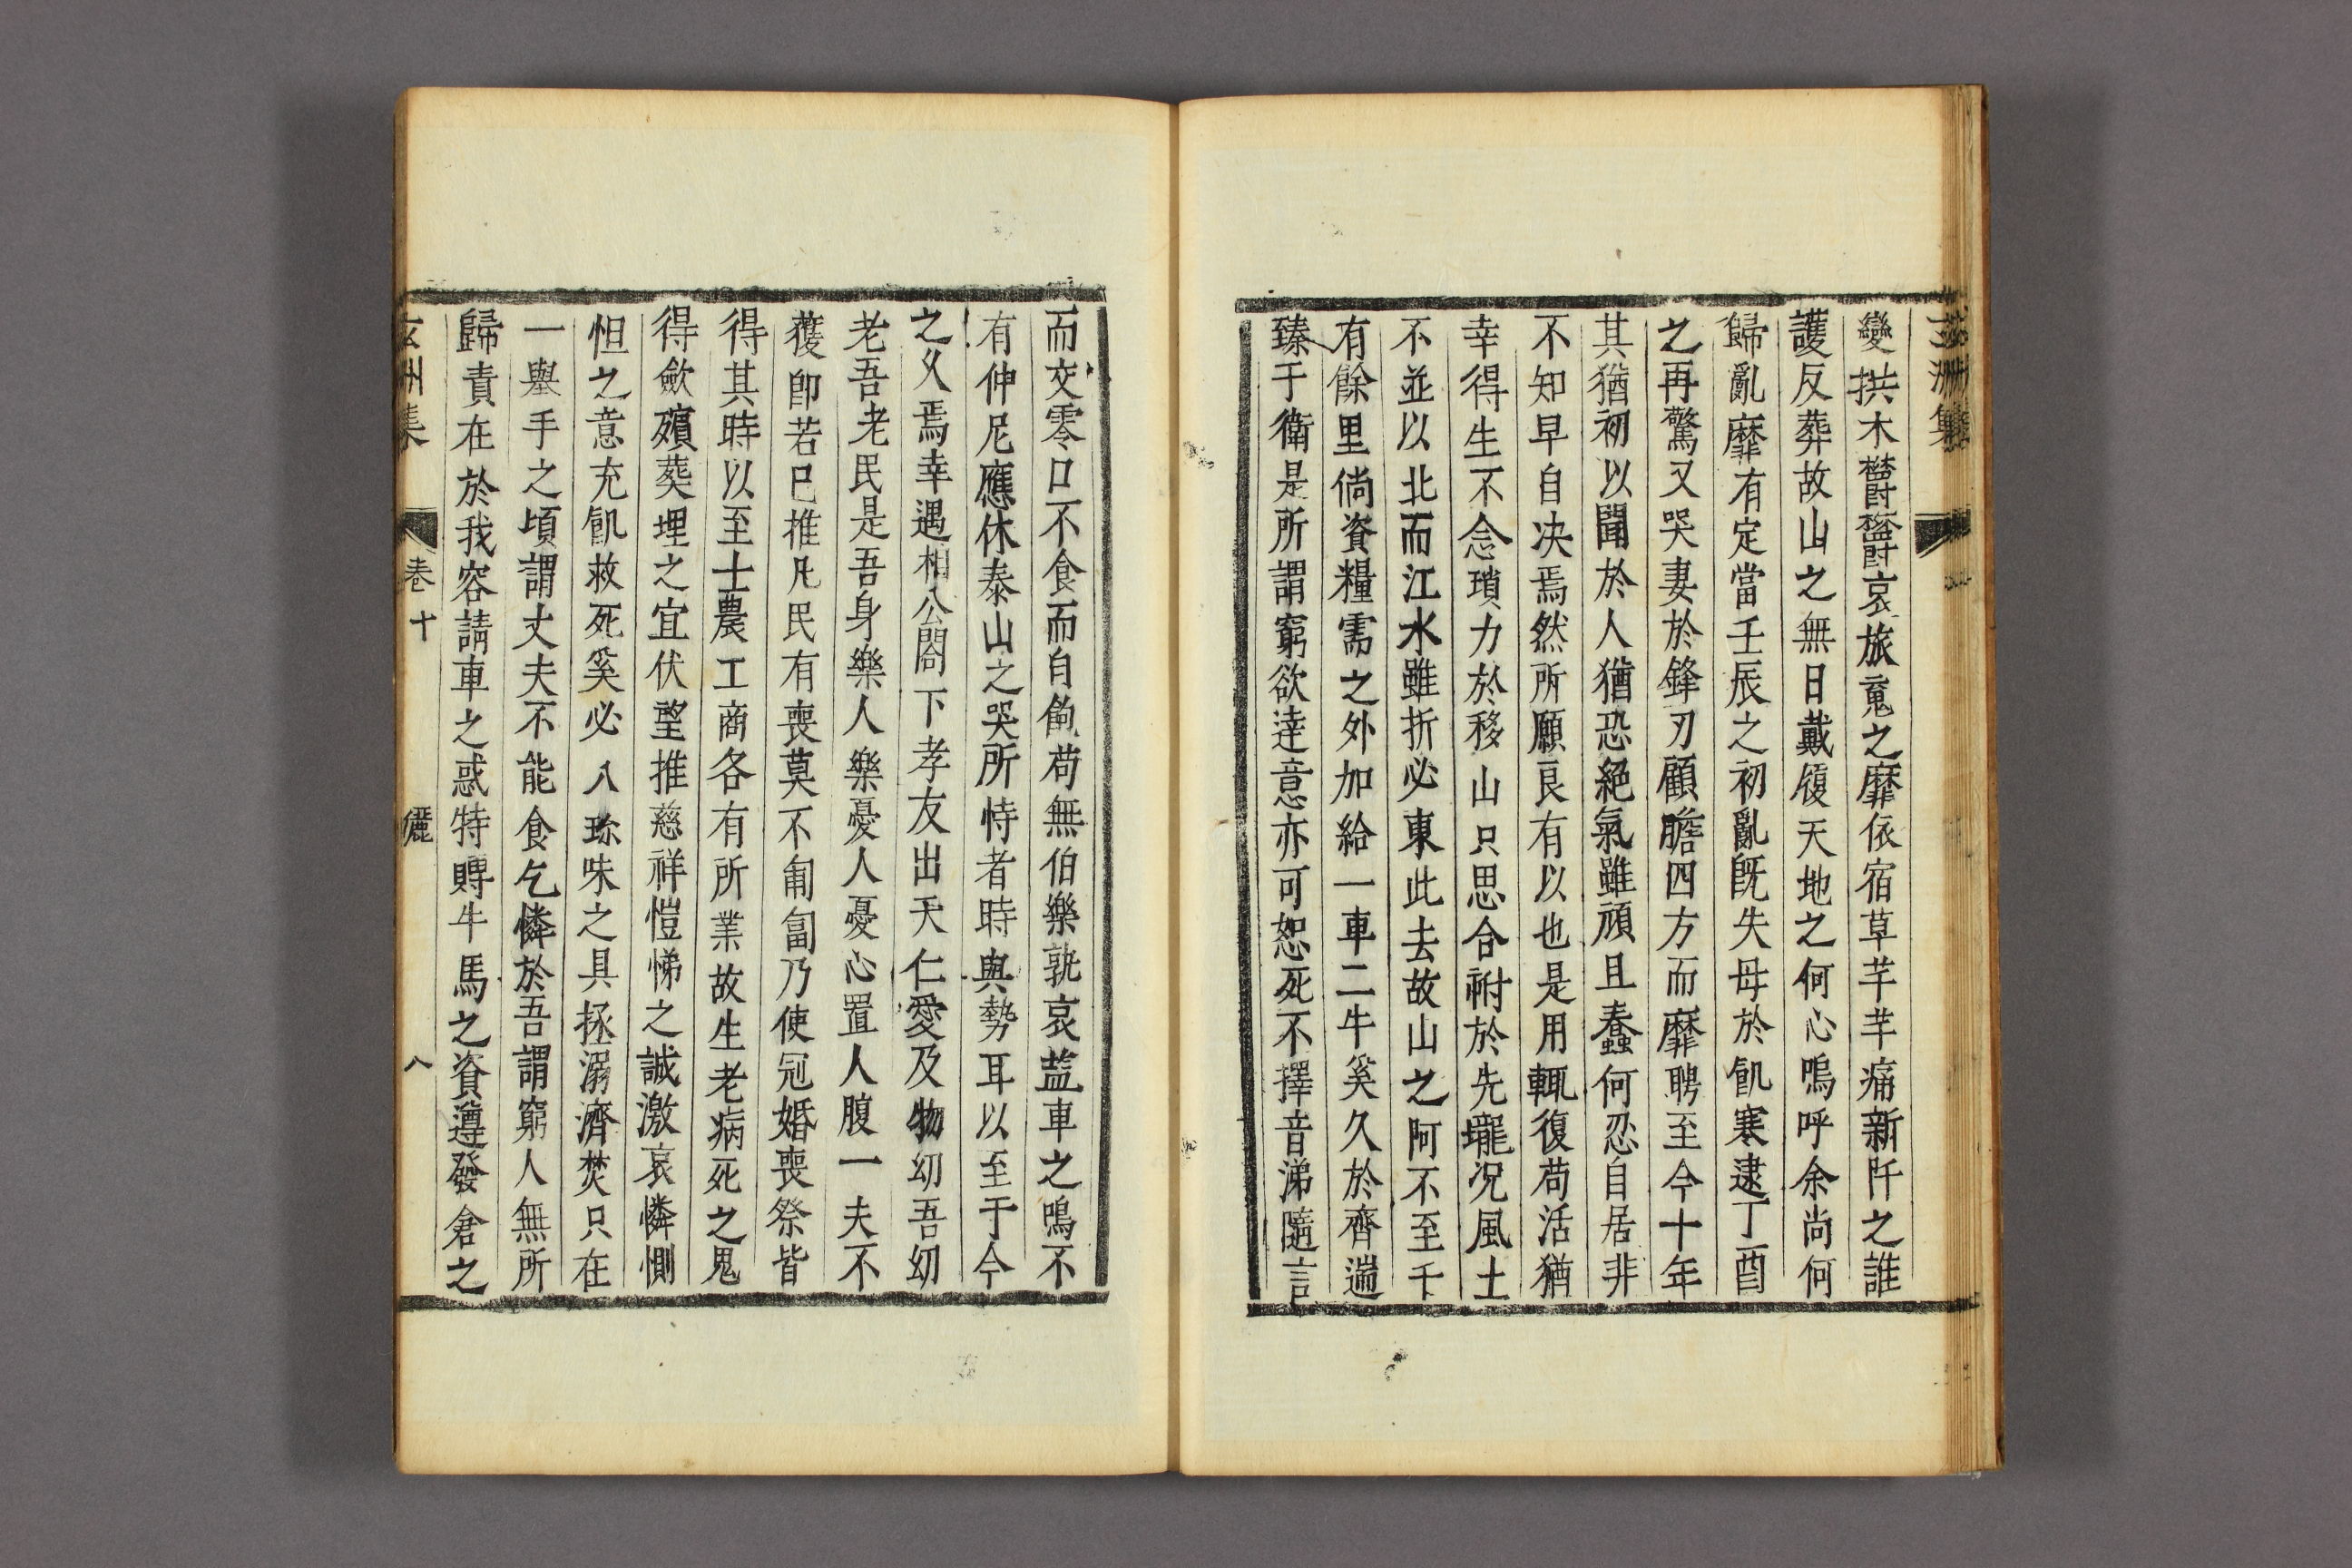 變拱木鬱鬱哀旅䰟之靡依宿草芊芊痛新阡之誰
護反葬故山之無日戴履天地之何心嗚呼余尚何
歸亂靡有定當壬辰之初亂旣失母於飢寒逮丁酉
之再驚又哭妻於鋒刃顧瞻四方而靡聘至今十年
其猶初以聞於人猶恐絕氣雖頑且蠢何忍自居非
不知早自决焉然所願良有以也是用輒復苟活猶
幸得生不念瑣力於移山只思合祔於先壠况風土
不並以北而江水雖折必東此去故山之阿不至千
有餘里倘資糧需之外加給一車二牛奚久於齊遄
臻于衛是所謂窮欲達意亦可恕死不擇音涕隨言
而交零口不食而自飽苟無伯樂孰哀盐車之鳴不
有仲尼應休泰山之哭所恃者時與勢耳以至于今
之乂焉幸遇相公閤下孝友出天仁愛及物幼吾幼
老吾老民是吾身樂人樂憂人憂心置人腹一夫不
獲卽若已推凡民有喪莫不匍匐乃使冠婚喪祭皆
得其時以至士農工商各有所業故生老病死之鬼
得歛殯葬埋之宜伏望推慈祥愷悌之誠激哀憐惻
怛之意充飢救死奚必八珎味之具拯溺濟焚只在
一舉手之頃謂丈夫不能食乞憐於吾謂窮人無所
歸責在於我容請車之惑特賻牛馬之資遵發倉之
玄洲集 卷十 儷 八